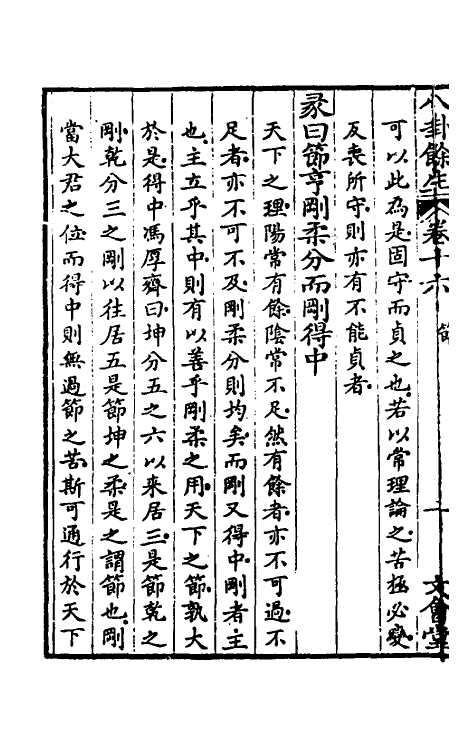 八卦餘生 卷十六 節 二 文會堂
可以此為是固守而貞之也若以常理論之苦極必變
反喪所守則亦有不能貞者
彖曰節亨剛柔分而剛得中
天下之理陽常有餘陰常不足然有餘者亦不可過不
足者亦不可不及剛柔分則均矣而剛又得中剛者主
也主立乎其中則有以善乎剛柔之用天下之節孰大
於是得中馮厚齋曰坤分五之六以來居三是節乾之
剛乾分三之剛以往居五是節坤之柔是之謂節也剛
當大君之位而得中則無過節之苦斯可通行於天下